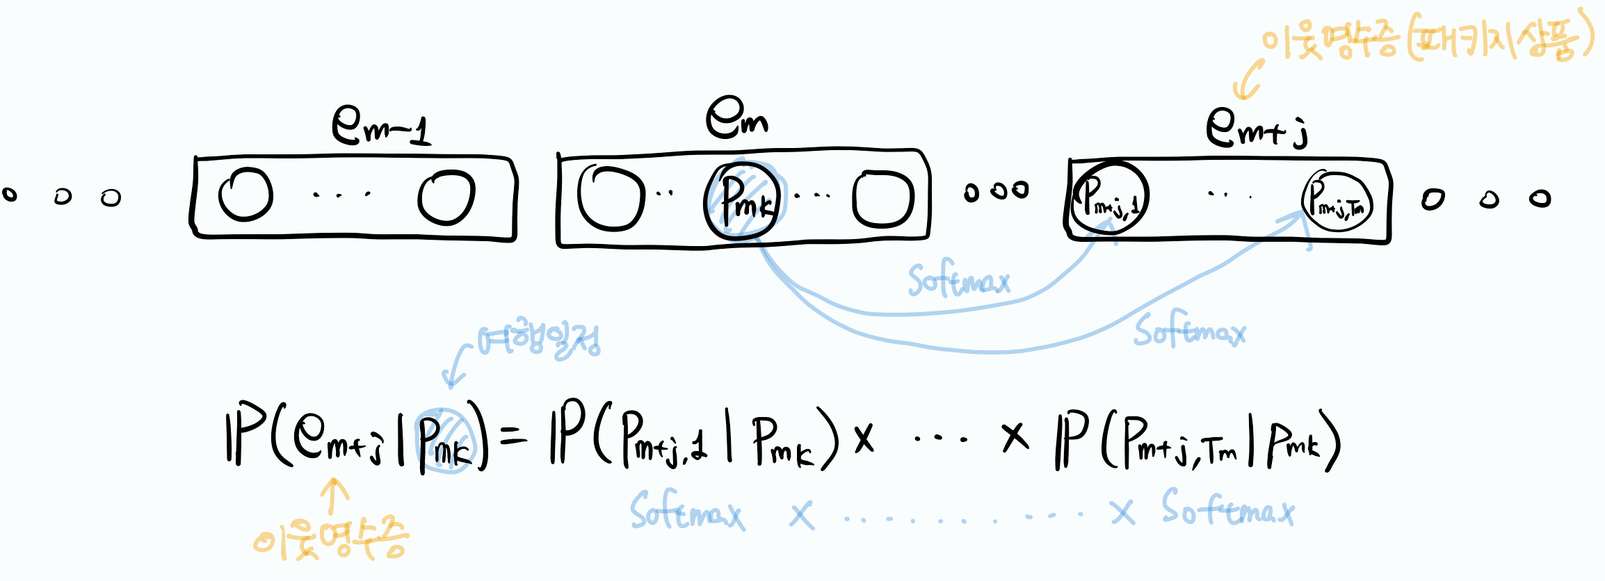 이웃영수증(패키지상품)
e_{m-1} e_m e_{m+j}
P_{mk} P_{m+j,1} P_{m+j,Tm}
Softmax
Softmax
여행일정
ℙ(e_{m+j}|P_{mk}) = ℙ(P_{m+j,1}|P_{mk}) × ··· × ℙ(P_{m+j,Tm}|P_{mk})
Softmax × ·········· × Softmax
이웃영수증